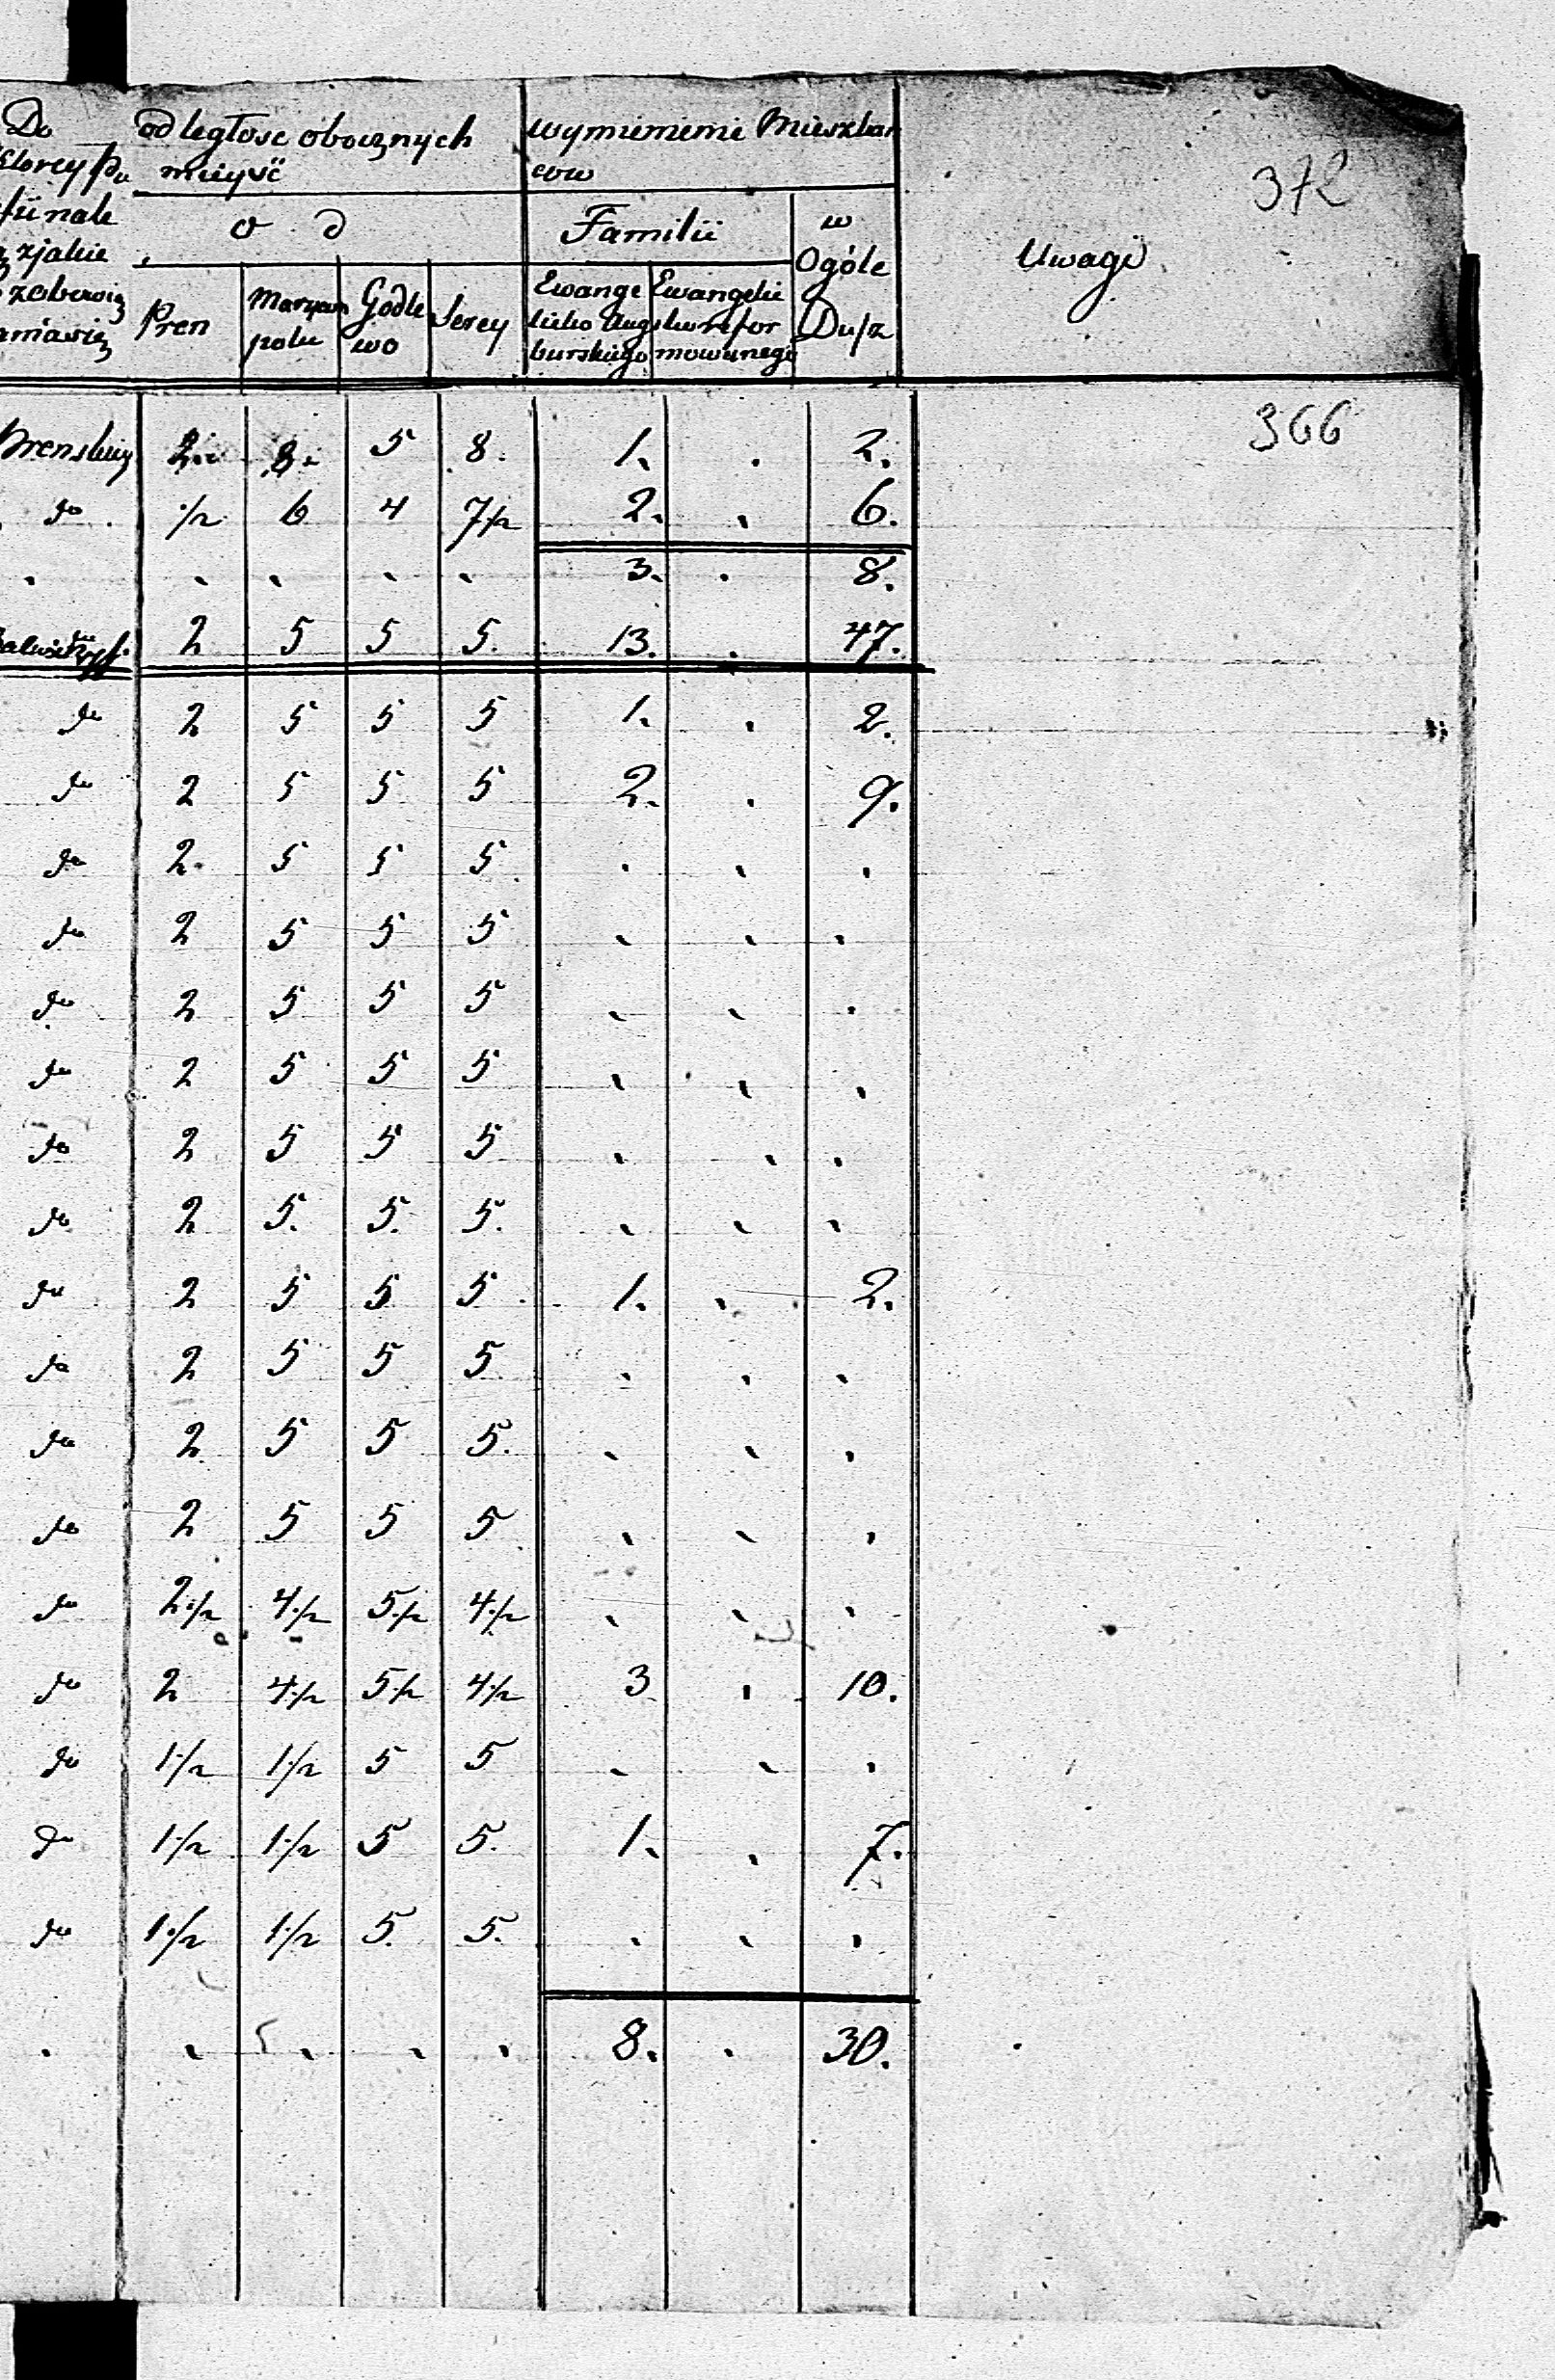 Do odległosc obocznych wymienieni Mieszkan
ktorey Pa mieysć cow 372
o d Familii w
zjakie Ogóle Uwagi
Pren Maryam Godle Serey Ewange Ewangelii Dusz
polu wo licko Augs ko refor
burskiego mowanego
366
Prenskiey 2. 8. 5 8. 1. . 2.
do 1/2 6 4 7 1/2 2. . 6.
. . . . . 3. . 8.
2 5 5 5. 13. . 47.
do 2 5 5 5 1. . 2.
do 2 5 5 5 2. . 9.
do 2. 5 5 5 . . .
do 2 5 5 5 . . .
do 2 5 5 5 . . .
do 2 5 5 5 . . .
do 2 5 5 5 . . .
do 2 5. 5. 5. . . .
do 2 5 5 5 1. . 2.
do 2 5 5 5 . . .
do 2 5 5 5. . . .
do 2 5 5 5 . . .
do 2 1/2 4 1/2 5 1/2 4 1/2 . . .
do 2 4 1/2 5 1/2 4 1/2 3 . 10.
do 1 1/2 1 1/2 5 5 . . .
do 1 1/2 1 1/2 5 5. 1. . 7.
do 1 1/2 1 1/2 5. 5. . . .
. . . . . 8. . 30.